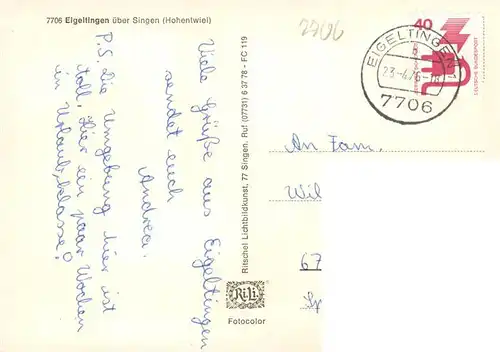 7706 Eigeltingen über Singen (Hohentwiel)
7706
Viele Grüße aus Eigeltingen
sendet euch
Andrea.
P.S. Die Umgebung hier ist
toll. Hier ein paar Wochen
in Urlaub, klasse!
Ritschel Lichtbildkunst, 77 Singen. Ruf (07731) 6 37 78 - FC 119
RiLi
Fotocolor
EIGELTINGEN
b
23.-4.76-18
7706
40
DEUTSCHE BUNDESPOST
An Fam.
Wil
67